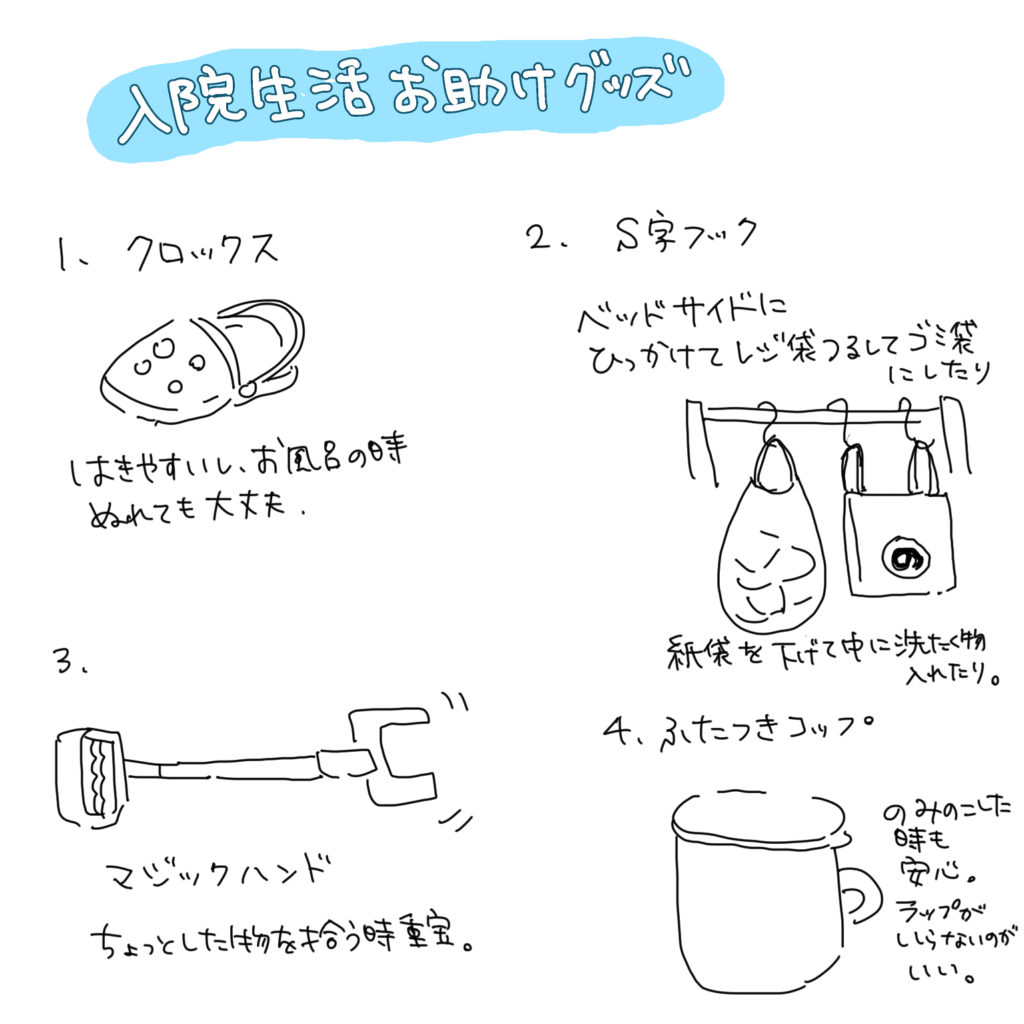 入院生活 お助けグッズ
1、 クロックス
はきやすいし、お風呂の時
ぬれても大丈夫.
2. S字フック
ベッドサイドに
ひっかけてレジ袋つるしてゴミ袋
にしたり
の
紙袋を下げて中に洗たく物
入れたり。
3.
マジックハンド
ちょっとした物を拾う時重宝。
4、ふたつきコップ。
のみのこした
時も
安心。
ラップが
いらないのが
いい。